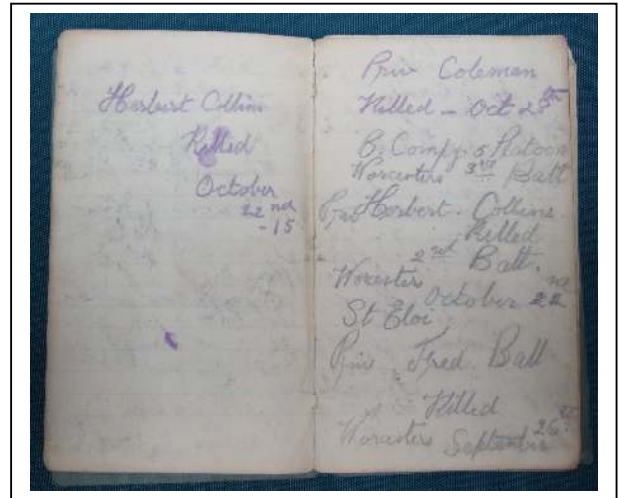 Herbert Collins
Killed
October
22nd
-15
Priv Coleman
Killed - Oct 25th
B. Compy. 5 Platoon
Worcesters 3rd Batt
Priv Herbert. Collins.
Killed
2nd Batt.
Worcesters
October 22nd
St Eloi
Priv. Fred. Ball
Killed
Worcesters September 26th